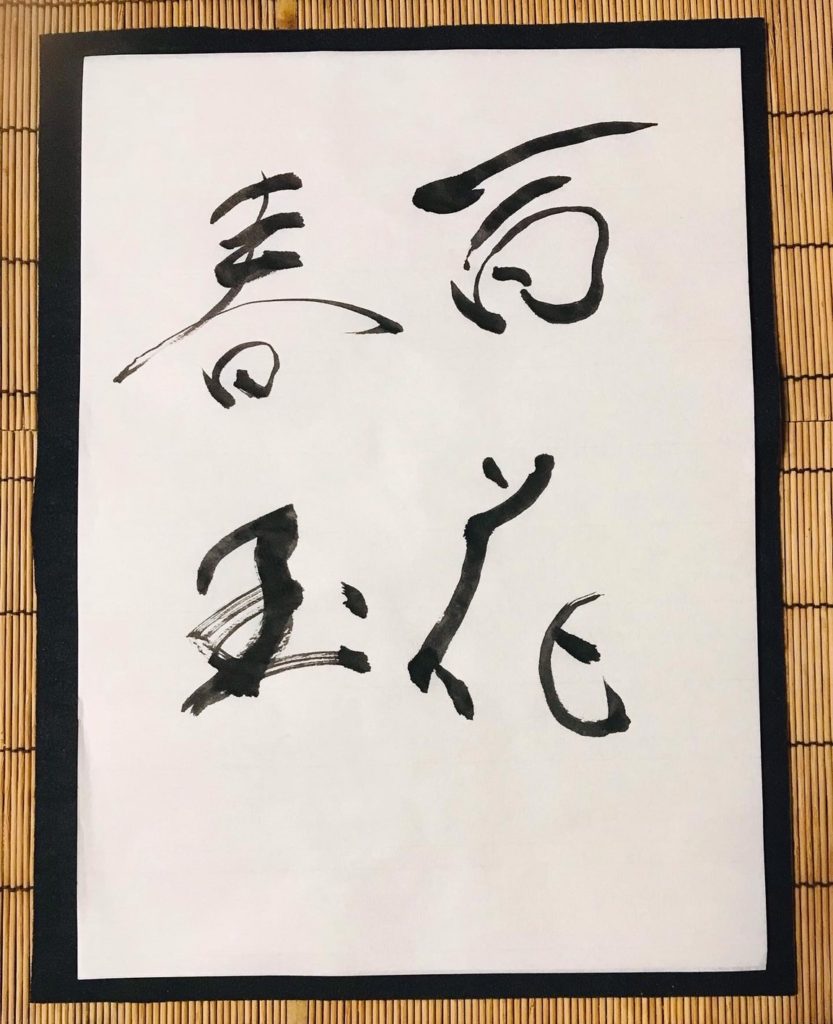 百花
春至